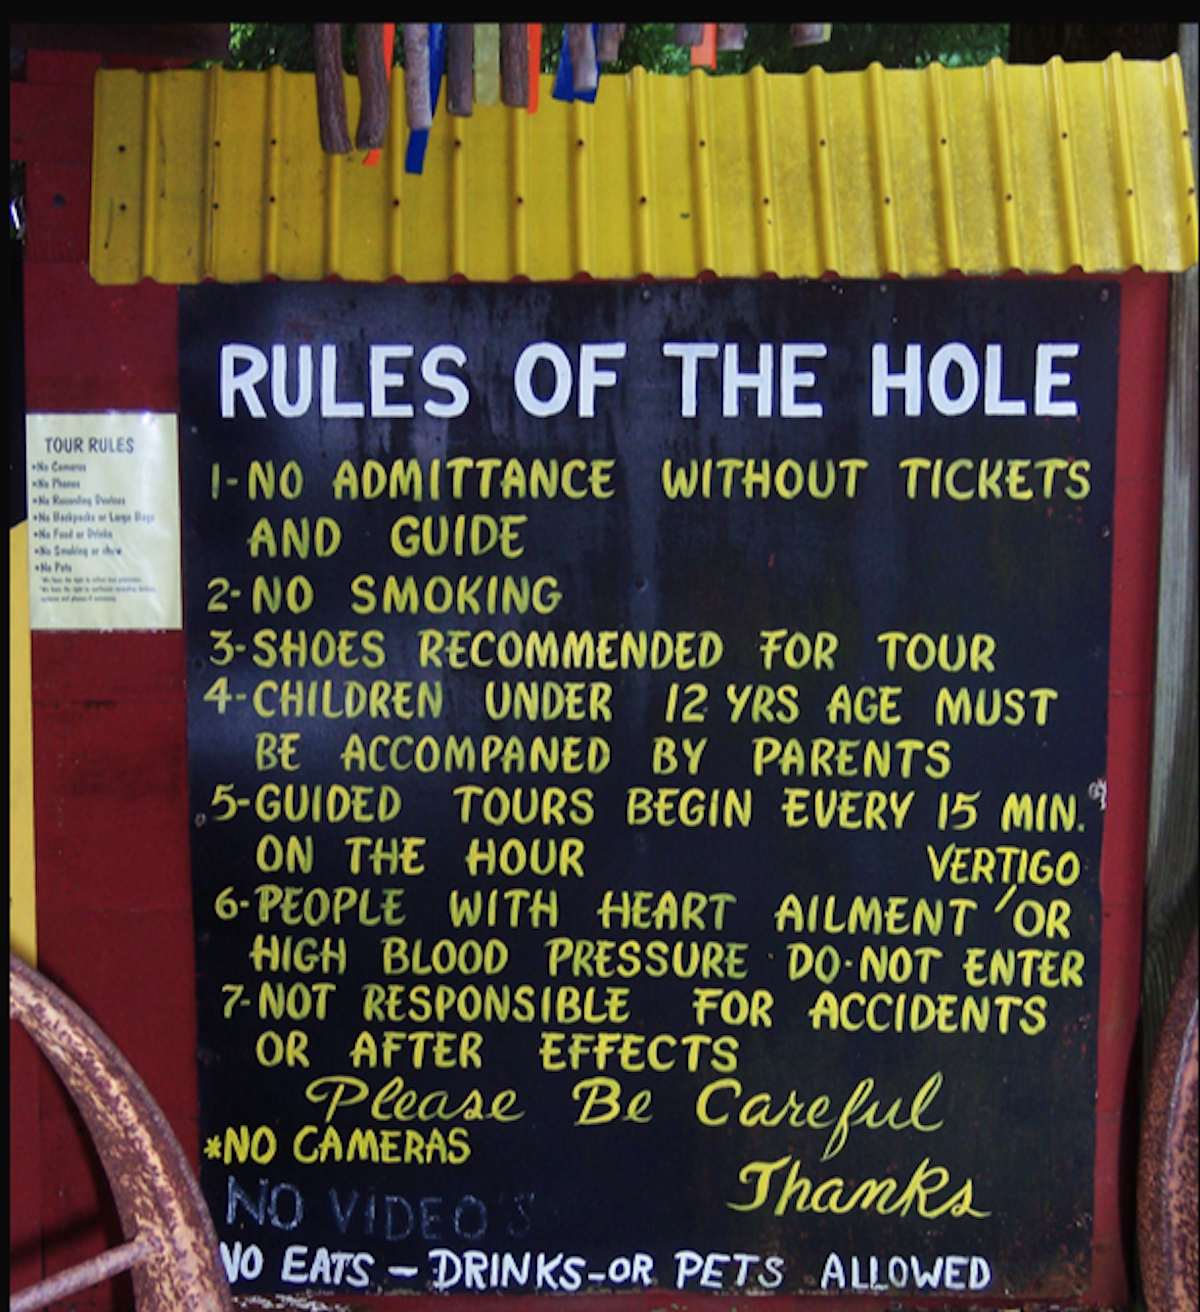 RULES OF THE HOLE
1-NO ADMITTANCE WITHOUT TICKETS
AND GUIDE
2-NO SMOKING
3-SHOES RECOMMENDED FOR TOUR
4-CHILDREN UNDER 12 YRS AGE MUST
BE ACCOMPANED BY PARENTS
5-GUIDED TOURS BEGIN EVERY 15 MIN.
ON THE HOUR
VERTIGO
6-PEOPLE WITH HEART AILMENT ′OR
HIGH BLOOD PRESSURE DO·NOT ENTER
7-NOT RESPONSIBLE FOR ACCIDENTS
OR AFTER EFFECTS
Please Be Careful
*NO CAMERAS
Thanks
NO VIDEO'S
NO EATS – DRINKS-OR PETS ALLOWED
TOUR RULES
•No Cameras
•No Phones
•No Recording Devices
•No Backpacks or Large Bags
•No Food or Drinks
•No Smoking or chew
•No Pets